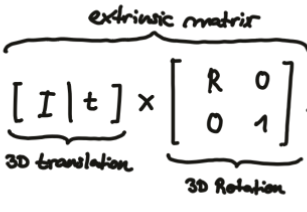 extrinsic matrix
[ I | t ] × [ R 0
0 1 ]
3D translation
3D Rotation